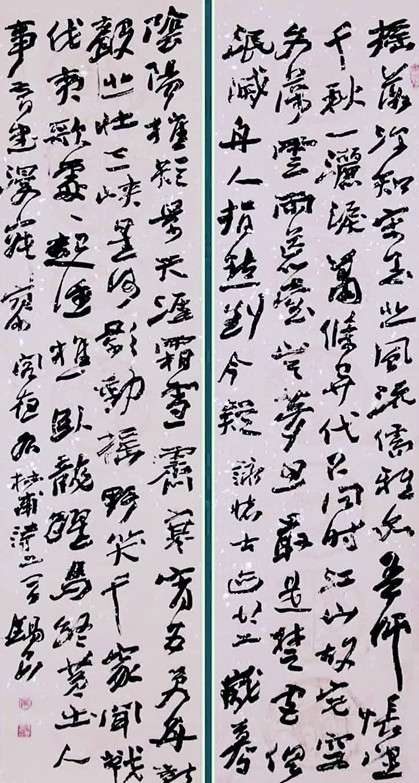 摇落深知宋玉悲風流儒雅亦吾師悵望
千秋一灑淚蕭條異代不同時江山故宅空
文藻雲雨荒臺豈夢思最是楚宮俱
泯滅舟人指點到今疑 詠懷古迹 歲暮
陰陽催短景天涯霜雪霽寒宵五更鼓角
聲悲壯三峽星河影動搖野哭千家聞戰
伐夷歌處處起漁樵卧龍躍馬終黃土人
事音書漫寂寥 閣夜右杜甫詩二首